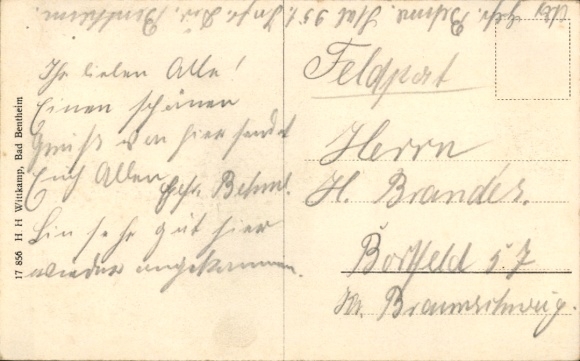 Abs. Gefr. Behme. Stal 951. Ingr. Bentheim.
Ihr lieben Alle!
Einen schönen
Gruß von hier sendet
Euch Allen
Gefr. Behme.
Bin sehr gut hier
wieder angekommen.
17 856 H H Wittkamp, Bad Bentheim
Feldpost
Herrn
H. Brandes.
Bortfeld 57
Kr. Braunschweig.